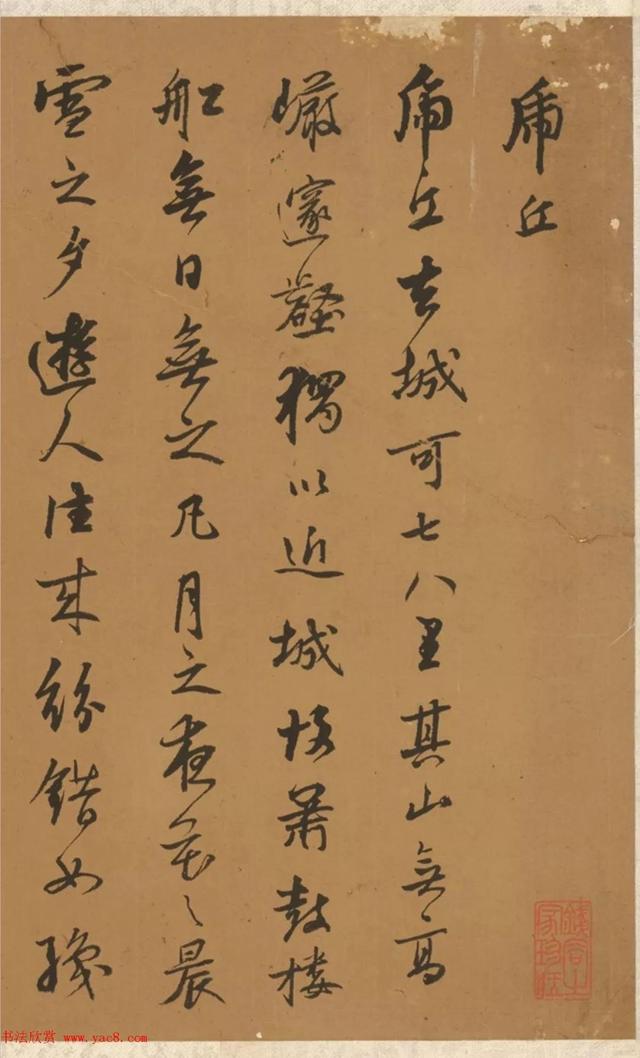 虎丘
虎丘去城可七八里其山無高
巖邃壑獨以近城故簫鼓樓
船無日無之凡月之夜花之晨
雪之夕遊人往来紛錯如織
书法欣赏 www.yac8.com